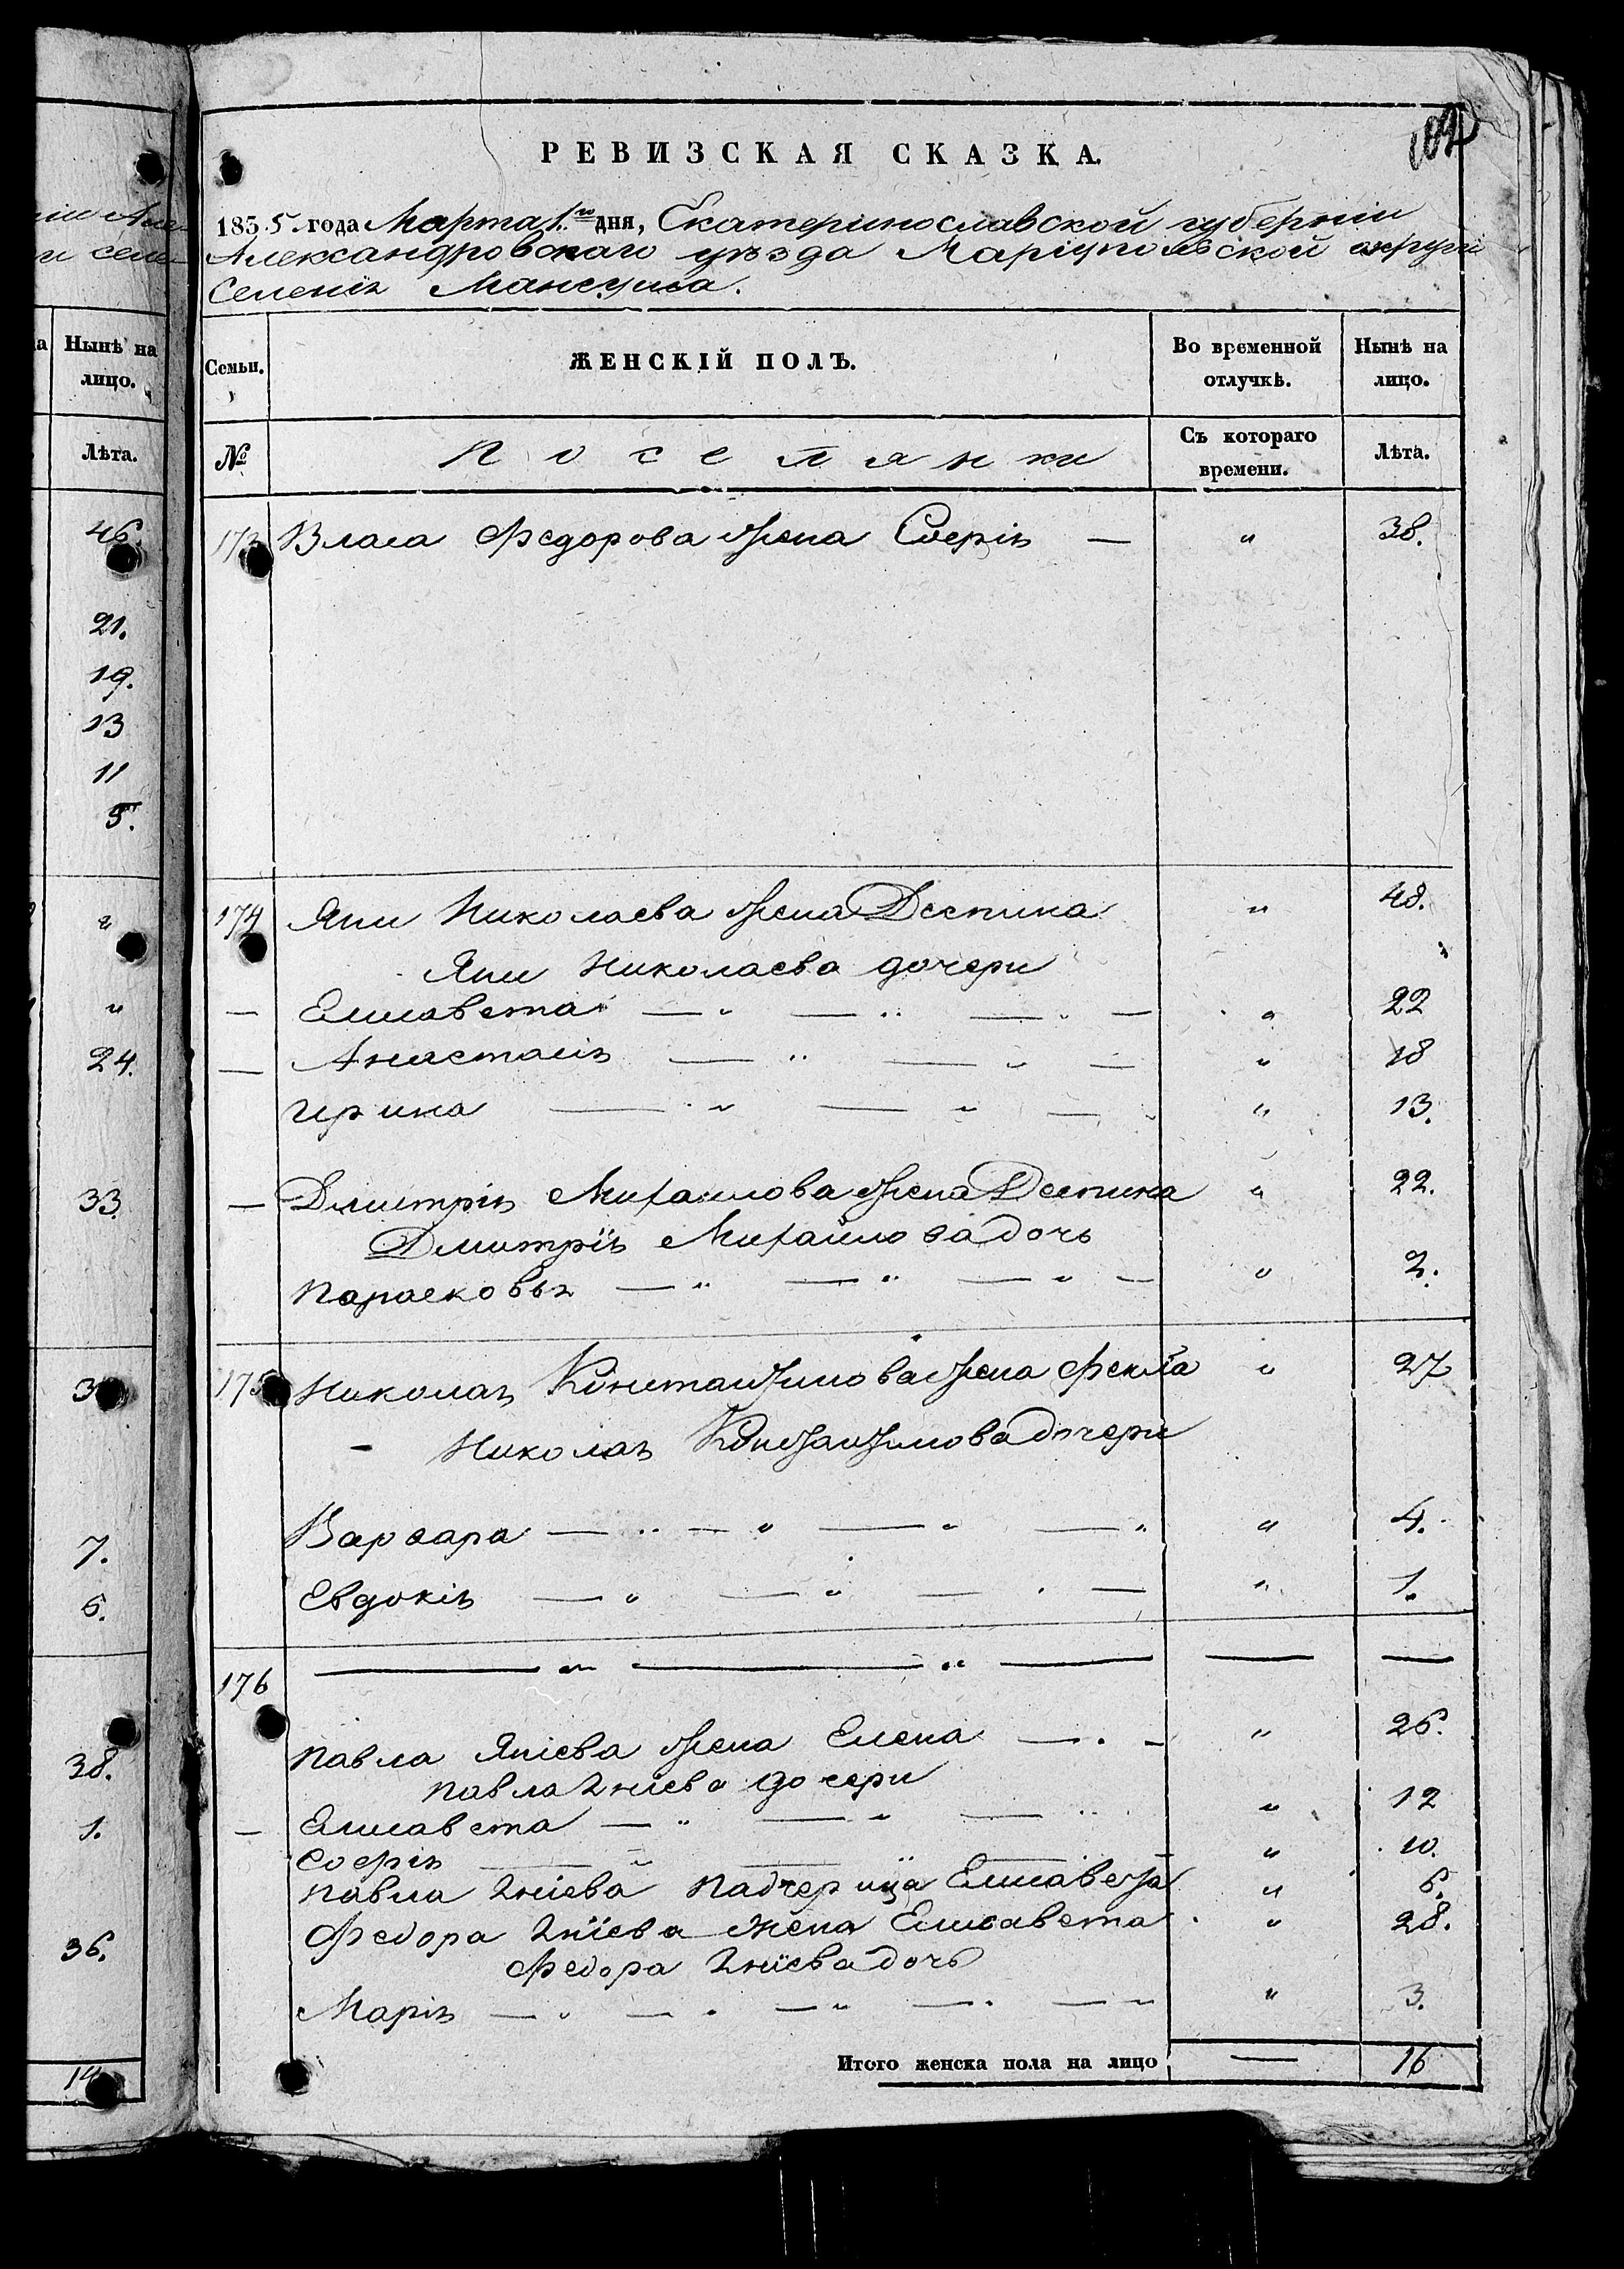 102
РЕВИЗСКАЯ СКАЗКА.
1855 года Марта 1го дня, Екатеринославской губерніи
Александровскаго уѣзда Маріупольской округи
Селенія Мансуша.
Семьи. ЖЕНСКІЙ ПОЛЪ. Во временной отлучкѣ. Нынѣ на лицо.
№ Поселянки Съ котораго времени. Лѣта.
173 Власа Федорова жена Софія — " 38.
174 Яни Николаева жена Деспина " 48.
Яни Николаева дочери
— Елисавета — " — " — " — " 22
— Анастасія — " — " — " 18
Ирина — " — " — " " 13.
— Дмитрія Михайлова жена Деспина " 22.
Дмитрія Михайлова дочь
Парасковья — " — " — " — " 2.
175 Николая Константинова жена Фекла " 27
- Николая Константинова дочери
Варвара — " — " — " — " " 4.
Евдокія — " — " — " — " 1.
176 — " — " — — —
Павла Яніева жена Елена — " — " 26.
Павла Яніева дочери
— Елисавета — " — " — " " 12
Софія — " — " — " 10.
Павла Яніева Падчерица Елисавета " 6.
Федора Яніева жена Елисавета " 28.
Федора Яніева дочь
Марія — " — " — " — " — " " 3.
Итого женска пола на лицо — 16
Нынѣ на
лицо.
Лѣта.
46.
21.
19.
13
11
5.
"
"
24.
33.
7.
6.
38.
1.
36.
14